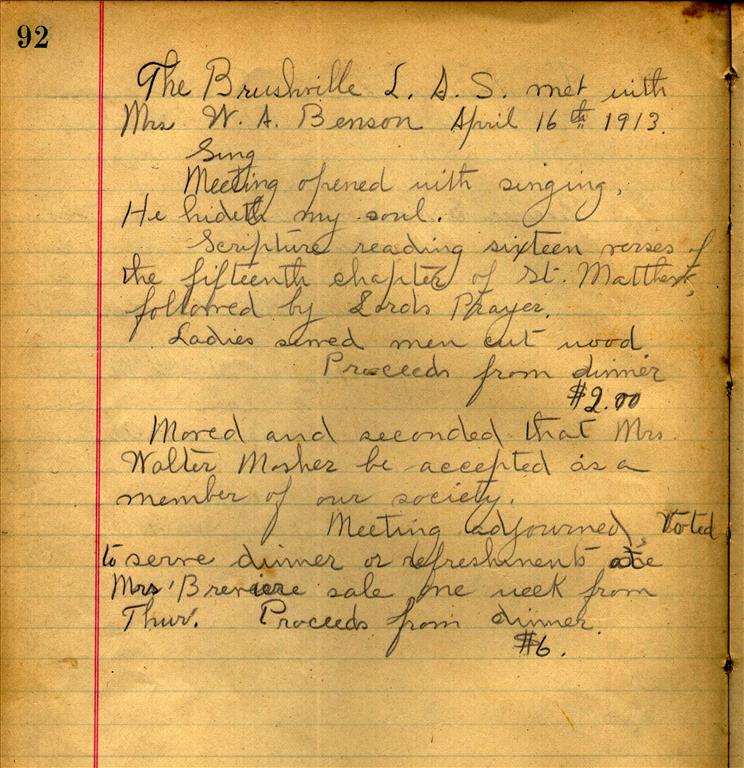 92
The Brushville L. A. S. met with
Mrs W. A. Benson April 16th 1913.
Sing
Meeting opened with singing,
He hideth my soul.
Scripture reading sixteen verses of
the fifteenth chapter of St. Matthew,
followed by Lords Prayer.
Ladies sewed men cut wood
Proceeds from dinner
$2.00
Moved and seconded that Mrs.
Walter Mosher be accepted as a
member of our society.
Meeting adjourned, Voted
to serve dinner or refreshments at
Mrs sale one week from
Thur. Proceeds from dinner.
$6.